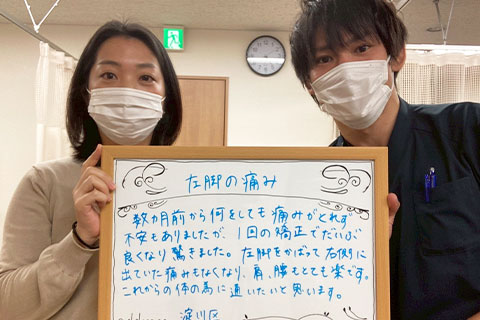 左脚の痛み
数カ月前から何をしても痛みがとれず
不安もありましたが、1回の矯正でだいぶ
良くなり驚きました。左脚をかばって右側に
出ていた痛みもなくなり、肩、腰もとても楽です。
これからの体の為に通いたいと思います。
淀川区